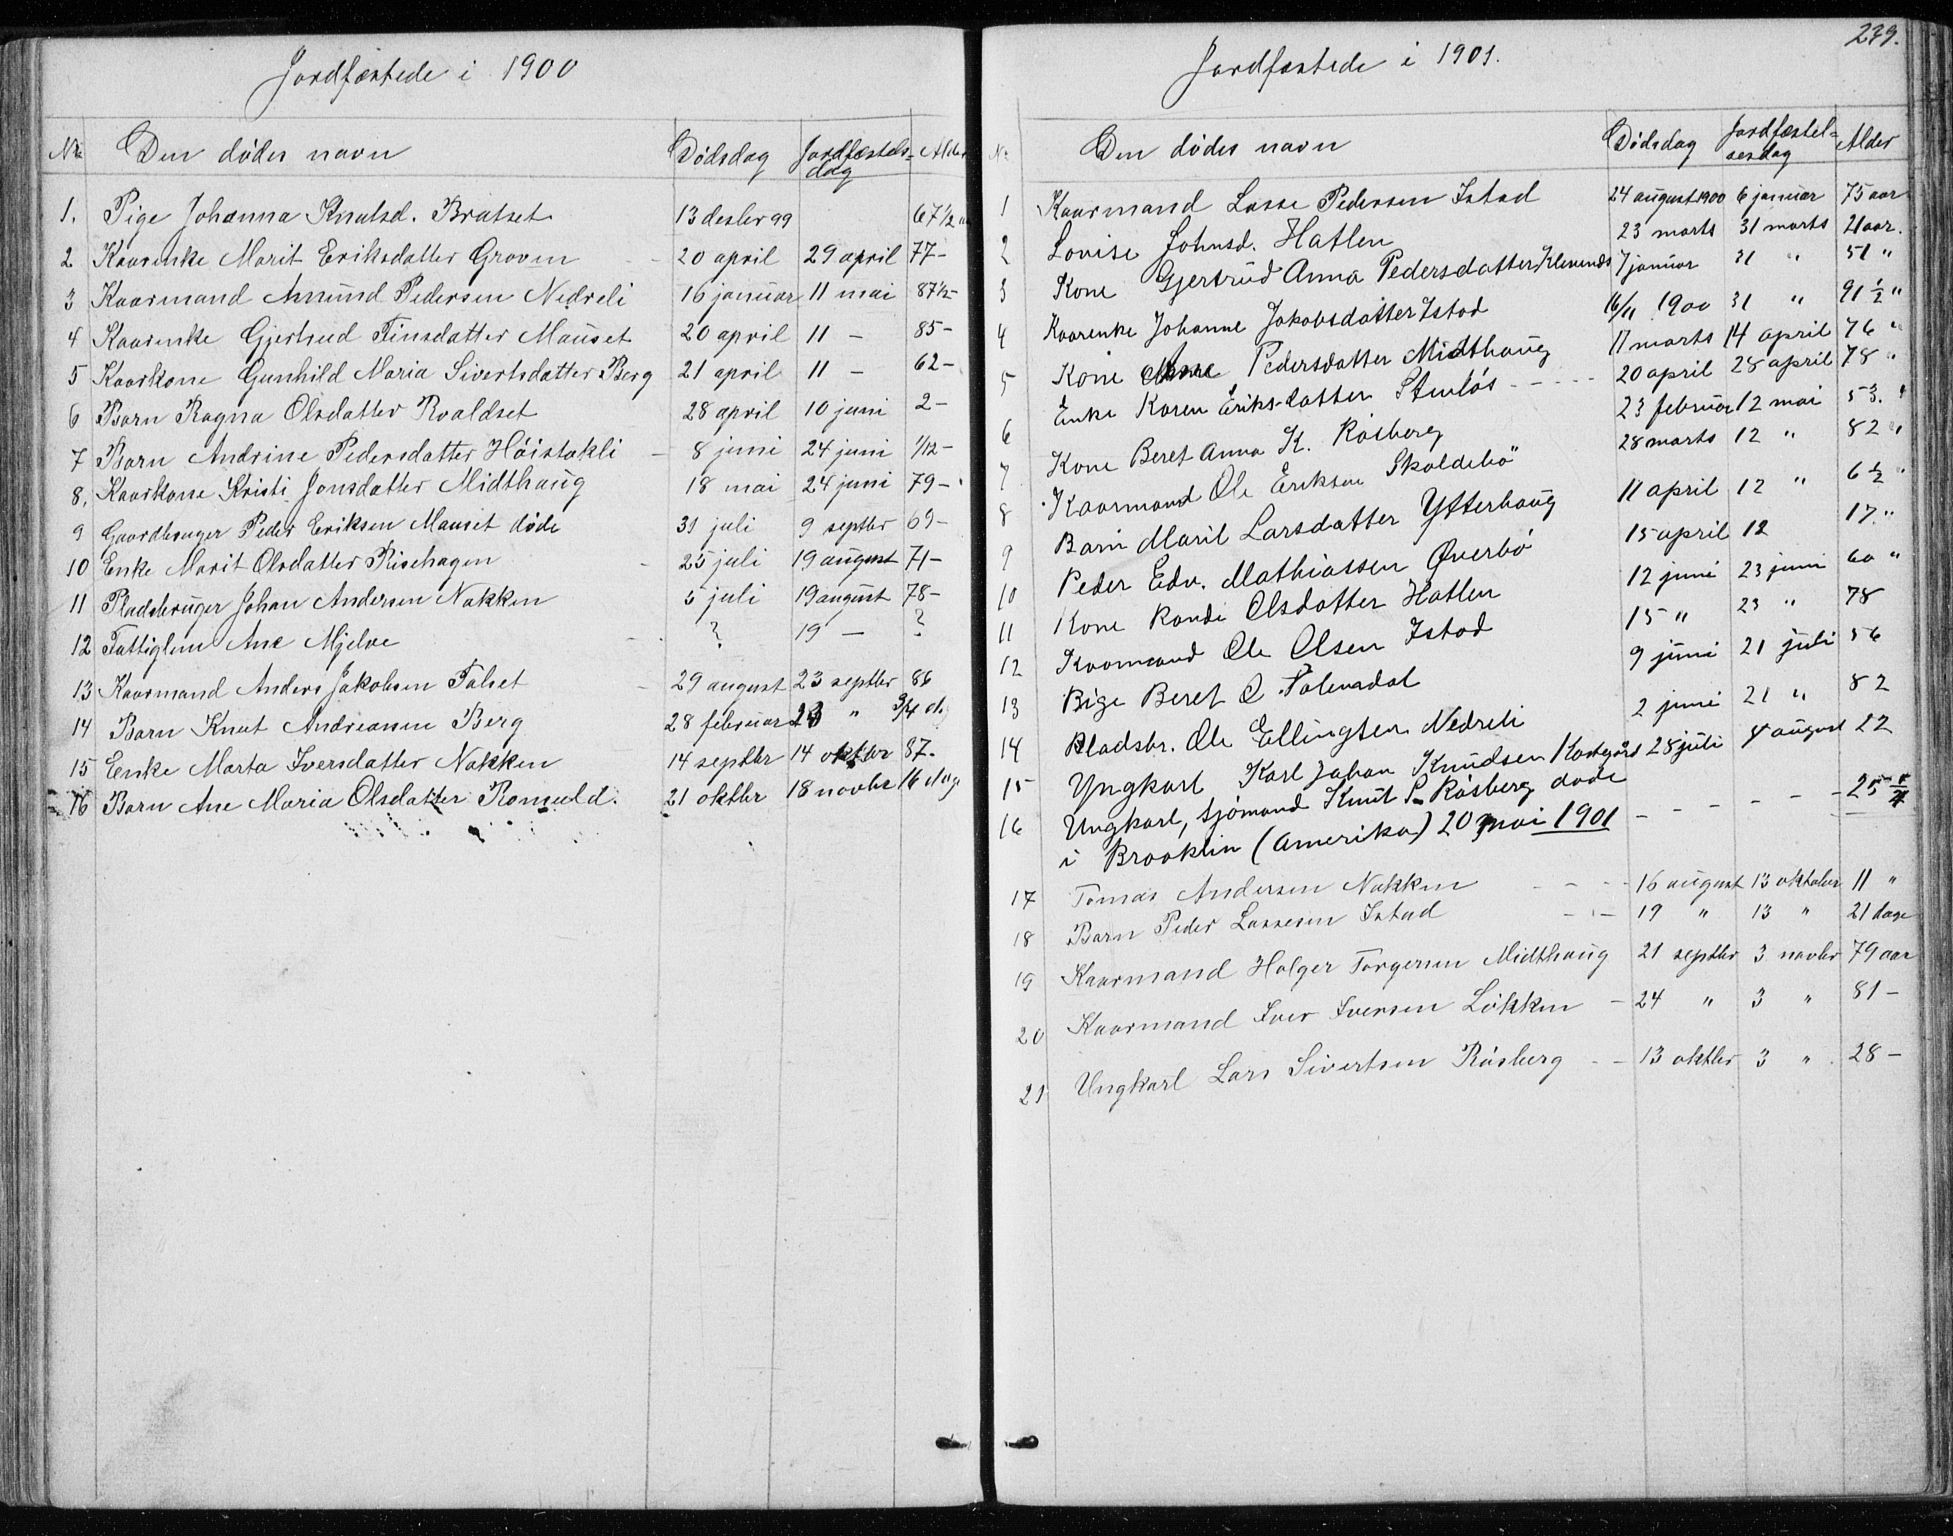 Jordfæstede i 1900
Nr. Den dødes navn Dødsdag Jordfæstels- Alder
dag
1. Pige Johanna Knutsd. Bratset 13 desbr 99 67 1/2 aar
2 Kaarenke Marit Eriksdatter Groven 20 april 29 april 77 –
3 Kaarmand Amund Pedersen Nedreli 16 januar 11 mai 87 1/2 –
4 Kaarenke Gjertrud Finsdatter Mauset 20 april 11 – 85 –
5 Kaarkone Gunhild Maria Sivertsdatter Berg 21 april 11 – 62 –
6 Barn Ragna Olsdatter Roaldset 28 april 10 juni 2 –
7 Barn Andrine Pedersdatter Høistakli – 8 juni 24 juni 1/12 –
8. Kaarkone Kristi Jonsdatter Midthaug 18 mai 24 juni 79 –
9 Gaardbruger Peder Eriksen Mauset døde 31 juli 9 septbr 69 –
10 Enke Marit Olsdatter Risehagen 25 juli 19 august 71 –
11 Pladsbruger Johan Andersen Nakken 5 juli 19 august 78 –
12 Fattiglem Ane Mjelve ? 19 – ?
13 Kaarmand Anders Jakobsen Talset – 29 august 23 septbr 86
14 Barn Knut Andreassen Berg 28 februar 23 " 3/4 d.
15 Enke Marta Iversdatter Nakken 14 septbr 14 oktbr 87.
16 Barn Ane Maria Olsdatter Romuld. 21 oktbr 18 novbr 16 dag
239.
Jordfæstede i 1901.
Nr. Den dødes navn Dødsdag Jordfæstel- Alder
sesdag
1 Kaarmand Lasse Pedersen Istad 24 august 1900 6 januar 75 aar
2 Lovise Johnsd. Hatlen 23 marts 31 marts 21 aar.
3 Kone Gjertrud Anna Pedersdatter 7 januar 31 " 51 "
4 Kaarenke Johanne Jakobsdatter Istad 16/11 1900 31 " 91 1/2 "
5 Kone Anne Pedersdatter Midthaug 17 marts 14 april 76 "
6 Enke Karen Eriks-datter Stenløs - - - - 20 april 28 april 78 "
7 Kone Beret Anna K. Røsberg 23 februar 12 mai 53. "
8 Kaarmand Ole Eriksen Skaldebø 28 marts 12 " 82 "
9 Barn Marit Larsdatter Ytterhaug 11 april 12 " 6 1/2 "
10 Peder Edv. Mathiassen Øverbø 15 april 12 17 "
11 Kone Randi Olsdatter Hatlen 12 juni 23 juni 60 "
12 Kaarmand Ole Olsen Istad 15 " 23 " 78
13 Pige Beret O. Talensdal 9 juni 21 juli 56
14 Pladsbr. Ole Ellingsen Nedreli 2 juni 21 " 82
15 Yngkarl Karl Johan Knudsen 28 juli 4 august 22
16 Ungkarl, sjømand Knut P. Røsberg døde – – – – – 25
i Brooklin (Amerika) 20 mai 1901
17 Tomas Andersen Nakken – – – 16 august 13 oktober 11 "
18 Barn Peder Lassesen Istad – – 19 " 13 " 21 dage
19 Kaarmand Holger Torgersen Midthaug 21 septbr 3 novbr 79 aar
20 Kaarmand Iver Iversen Løkken – 24 " 3 " 81 –
21 Ungkarl Lars Sivertsen Røsberg – – 13 oktbr 3 " 28 –